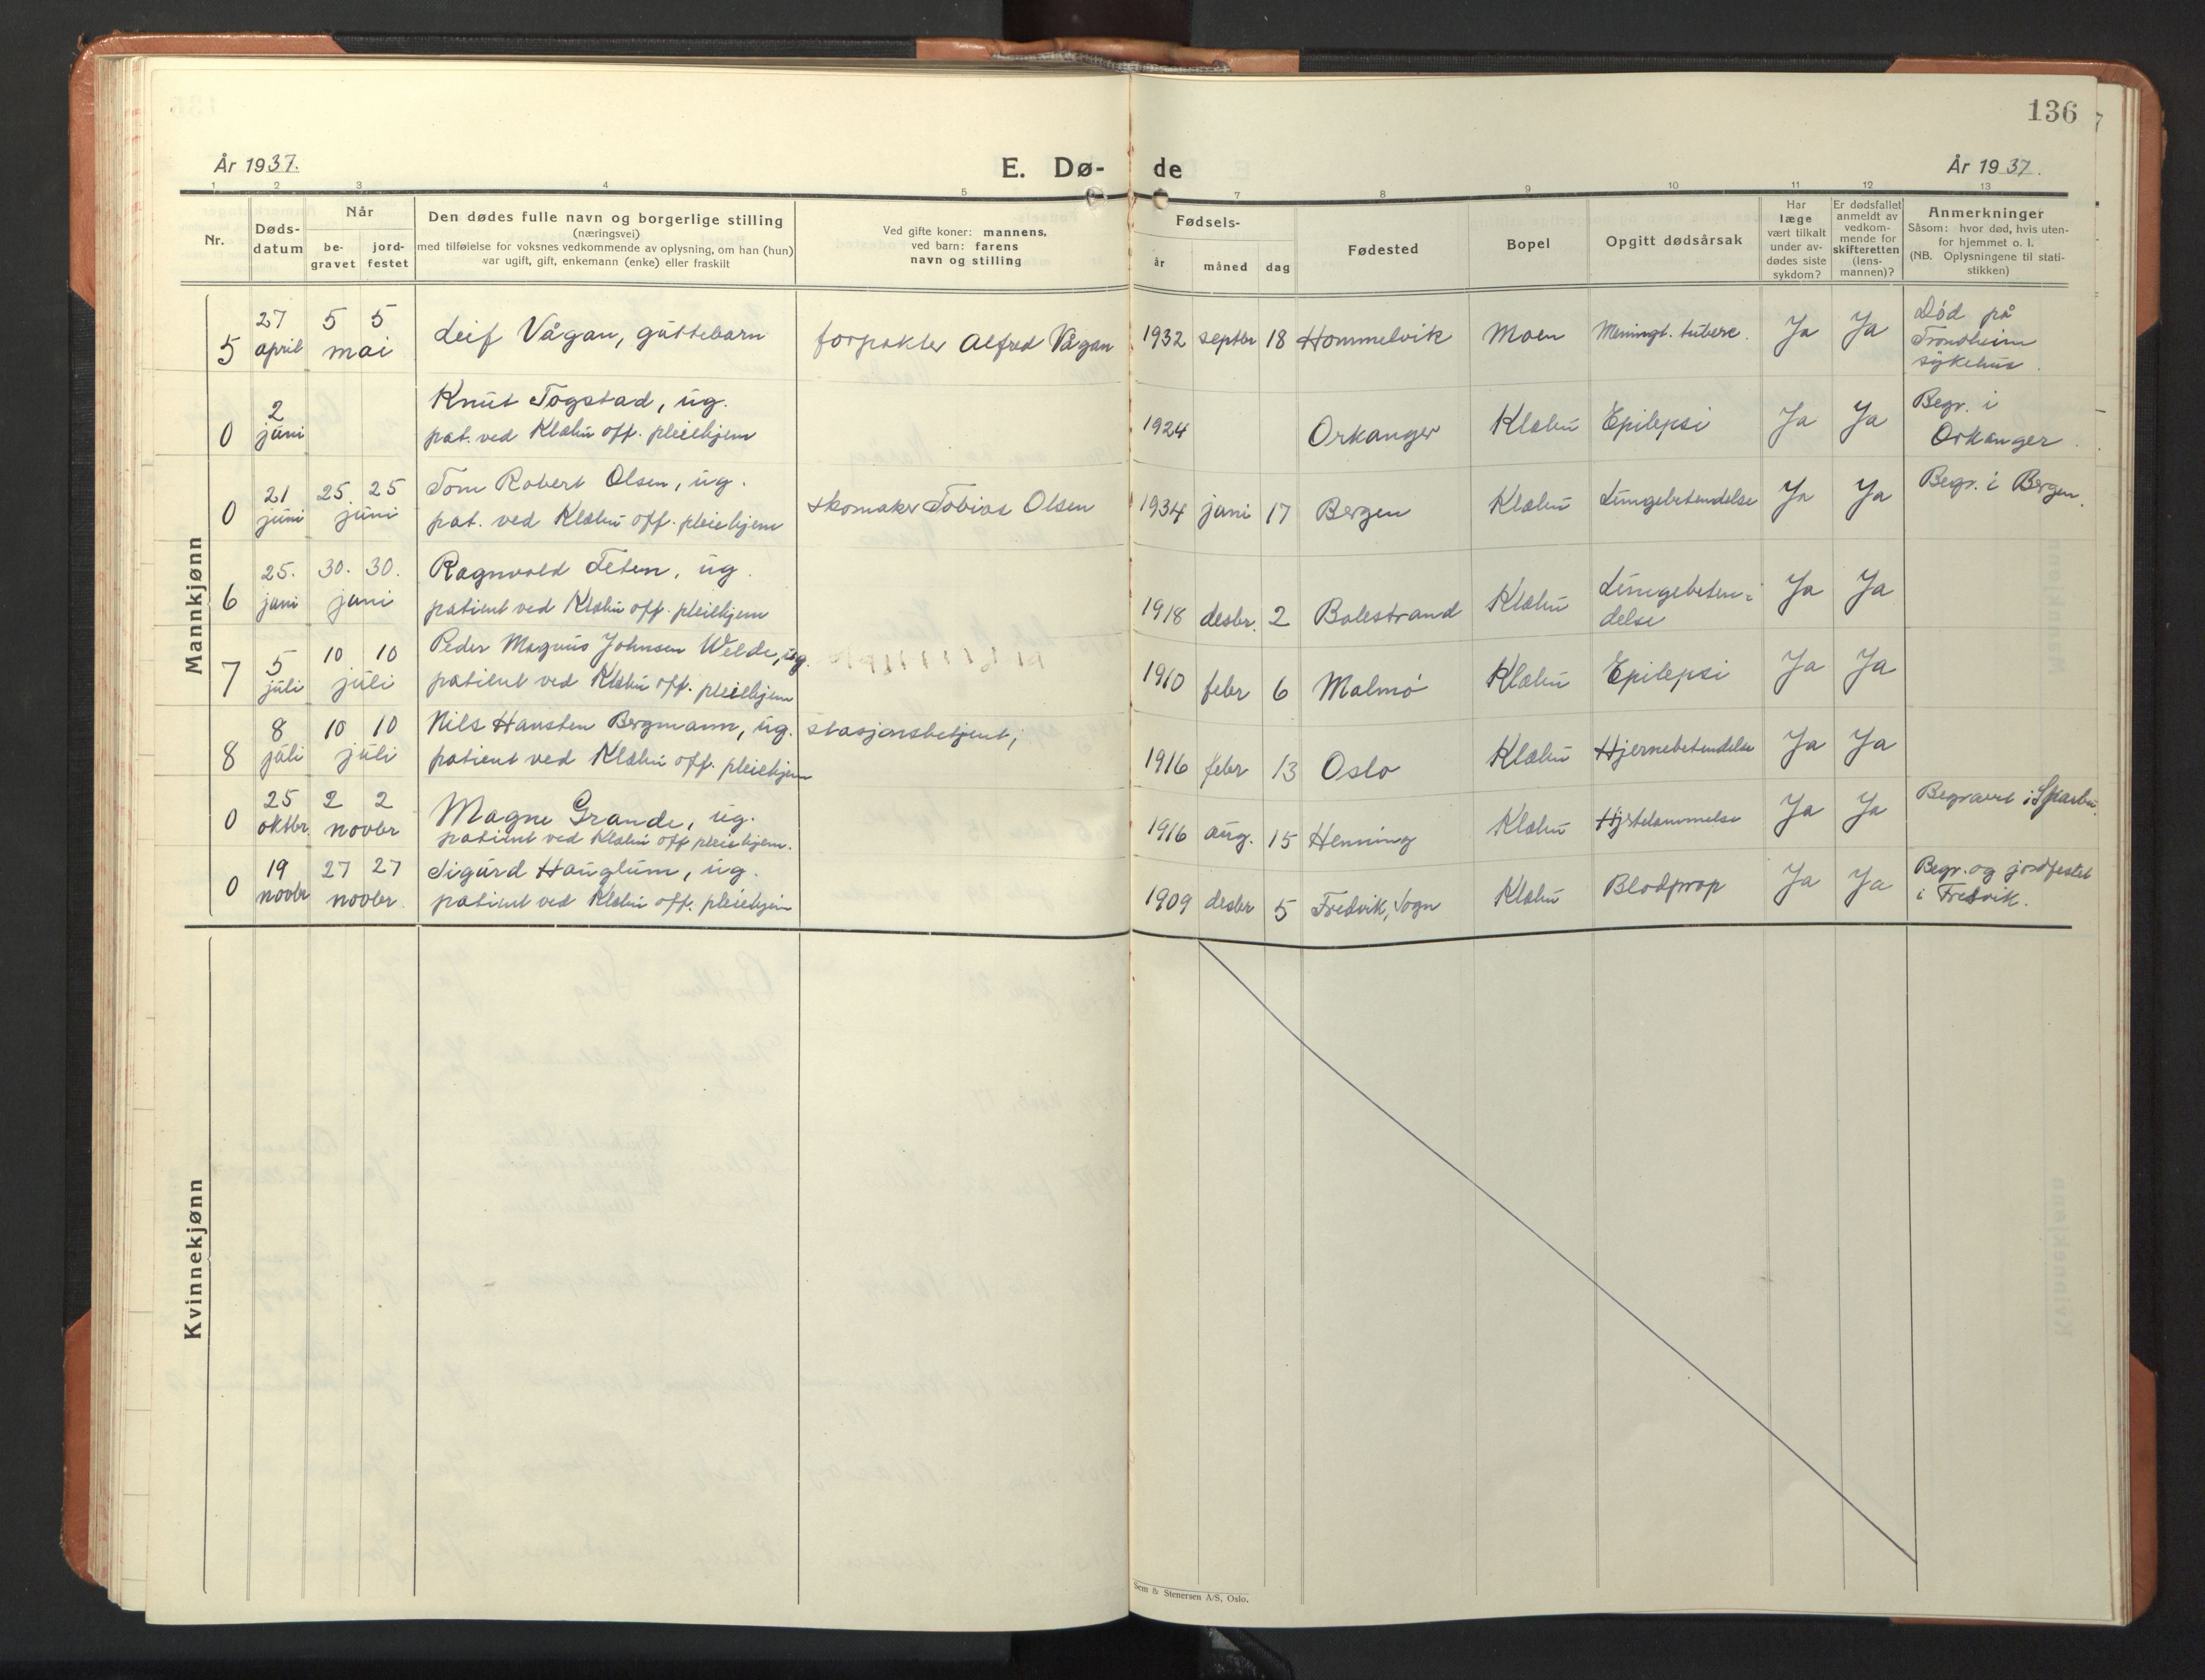 136
År 1937.
E. Dø-
de
År 1937.
1 2 3 4 5 7 8 9 10 11 12 13
Nr.
Døds-
datum
Når
be-
gravet
jord-
festet
Den dødes fulle navn og borgerlige stilling
(næringsvei)
med tilføielse for voksnes vedkommende av oplysning, om han (hun)
var ugift, gift, enkemann (enke) eller fraskilt
Ved gifte koner: mannens,
ved barn: farens
navn og stilling
Fødsels-
år
måned
dag
Fødested
Bopel
Opgitt dødsårsak
Har
læge
vært tilkalt
under av-
dødes siste
sykdom?
Er dødsfallet
anmeldt av
vedkom-
mende for
skifteretten
(lens-
mannen)?
Anmerkninger
Såsom: hvor død, hvis uten-
for hjemmet o. l.
(NB. Oplysningene til stati-
stikken)
Mannkjønn
5 27 april 5 5 mai Leif Vågan, guttebarn forpakter Alfred Vågan 1932 septbr 18 Hommelvik Moen Meningt. tuberc. Ja Ja Død på
Trondheim
sykehus.
0 2 juni Knut Togstad, ug.
pat. ved Klæbu off. pleiehjem 1924 Orkanger Klæbu Epilepsi Ja Ja Begr. i
Orkanger.
0 21 juni 25. 25 juni Tom Robert Olsen, ug.
pat. ved Klæbu off. pleiehjem skomaker Tobias Olsen 1934 juni 17 Bergen Klæbu Lungebetendelse Ja Ja Begr. i Bergen.
6 25. juni 30. 30. juni Ragnvald Feten, ug.
patient ved Klæbu off. pleiehjem 1918 desbr. 2 Balestrand Klæbu Lungebeten-
delse Ja Ja
7 5 juli 10 10 juli Peder Magnus Johnsen Welde, ug.
patient ved Klæbu off. pleiehjem 1910 febr 6 Malmø Klæbu Epilepsi Ja Ja
8 8 juli 10 10 juli Nils Hansten Bergmann, ug. stasjonsbetjent,
patient ved Klæbu off. pleiehjem 1916 febr 13 Oslo Klæbu Hjernebetendelse Ja Ja
0 25 oktbr. 2 2 novbr Magne Grande, ug.
patient ved Klæbu off pleiehjem. 1916 aug. 15 Henning Klæbu Hjertelammelse Ja Ja Begravet i Sparbu.
0 19 novbr 27 27 novbr. Sigurd Hauglum, ug.
patient ved Klæbu off. pleiehjem 1909 desbr 5 Fresvik, Sogn Klæbu Blodprop Ja Ja Begr. og jordfestet
i Fresvik.
Kvinnekjønn
Sem & Stenersen A/S, Oslo.